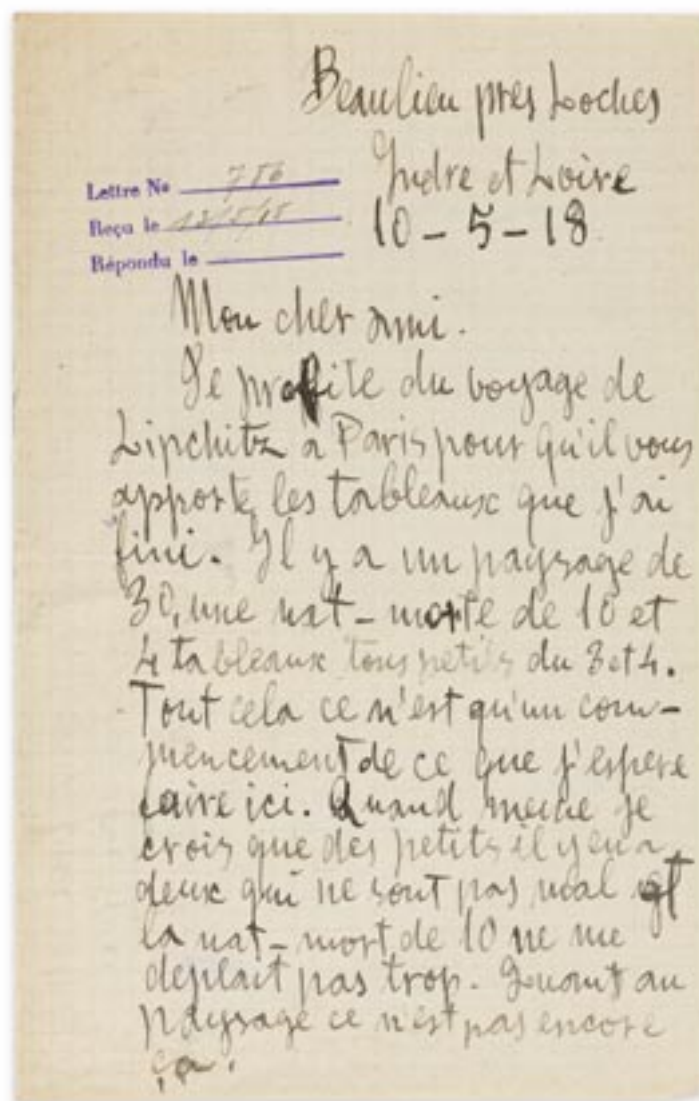 Beaulieu pres Loches
Indre et Loire
Lettre No 756
Reçu le 12/5/18
Répondu le
10-5-18.
Mon cher ami.
Je profite du voyage de
Lipchitz a Paris pour qu'il vous
apporte les tableaux que j'ai
fini. Il y a un paysage de
30, une nat-morte de 10 et
4 tableaux tous petits du 3 et 4.
Tout cela ce n'est qu'un com-
mencement de ce que j'espere
faire ici. Quand meme je
crois que des petits il y en a
deux qui ne sont pas mal et
la nat-mort de 10 ne me
deplait pas trop. Quant au
paysage ce n'est pas encore
ça.